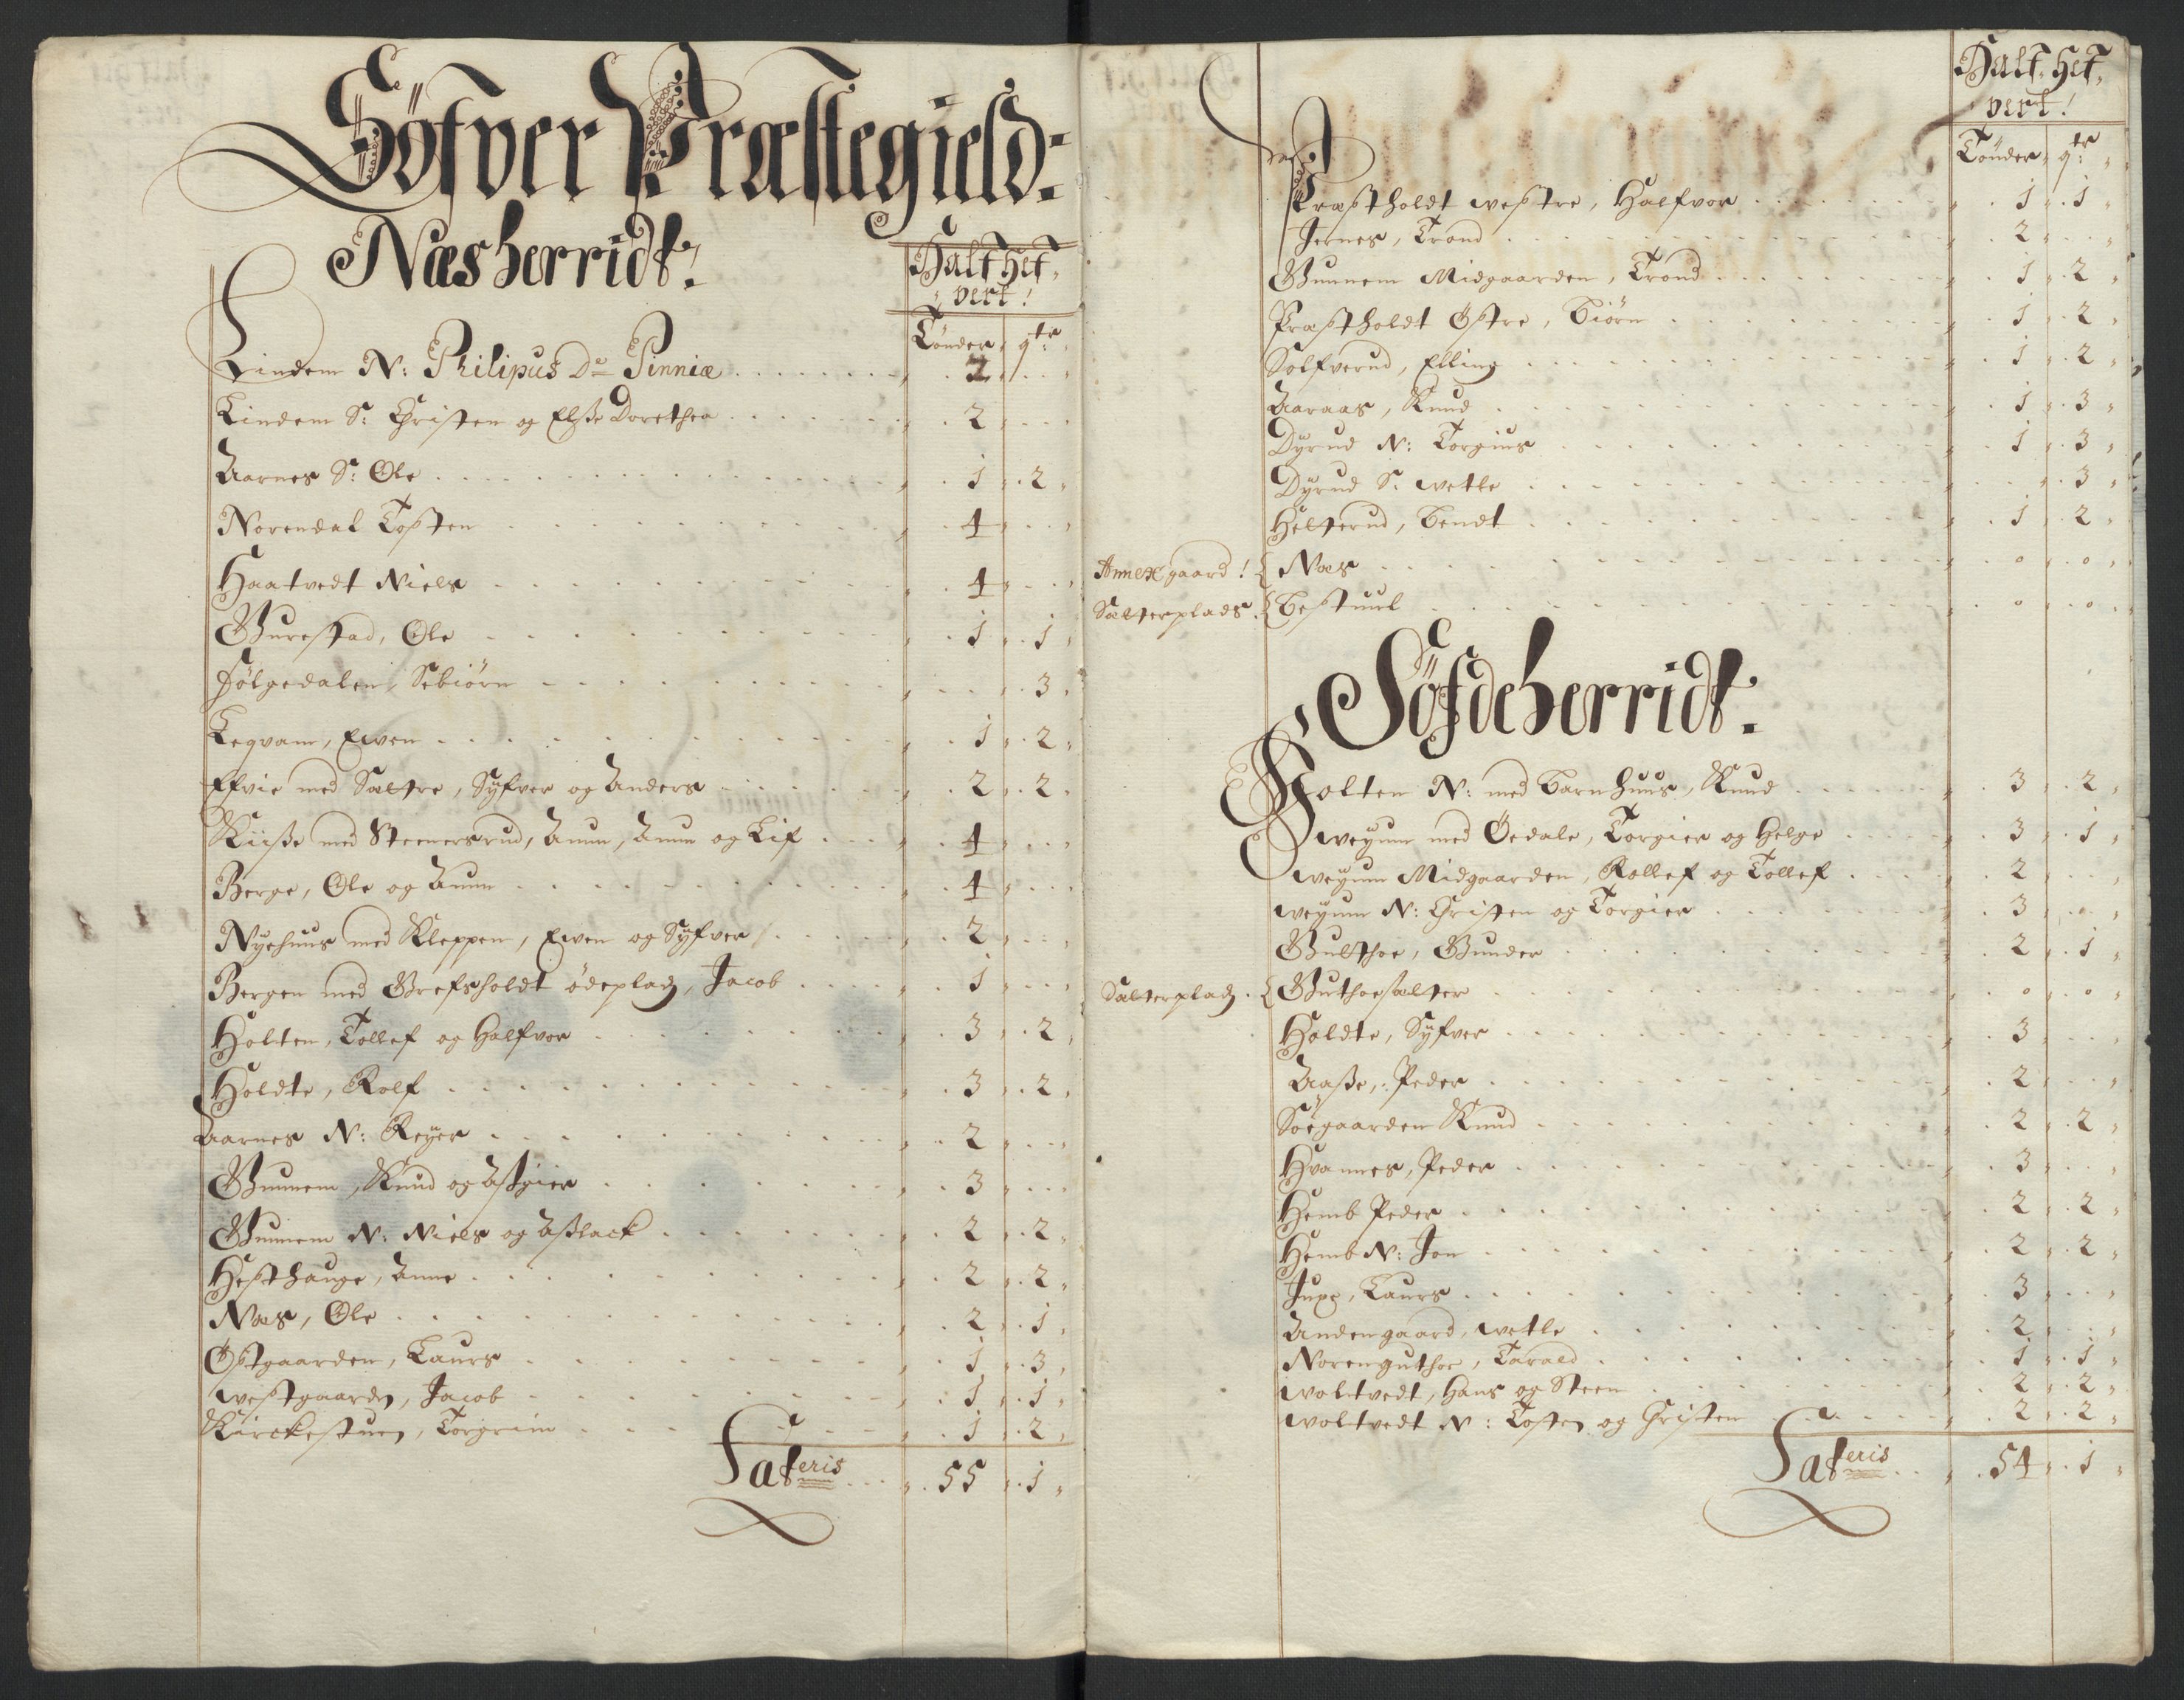 Söfver Præstegield:
Næs herridt!
Halft het,
vert!
Tönder, qtr
Lindem N: Philipus De Pinniæ . . . 2 . . .
Lindem S: Christen og Elsße Dorethea . . . 2 . . .
Aarnes S: Ole . . . 1 . 2
Norendal Tosten . . . 4 . . .
Haatvedt Niels . . . 4 . . .
Gurestad, Ole . . . 1 . 1
Følgedalen, Sebiörn . . . 3
Legvam, Ewen . . . 1 . 2
Efvie med Sæltre, Syfver og Anders . . . 2 . 2
Kiiße med Steenersrud, Aunn, Aunn og Lif . . . 4 . . .
Berge, Ole og Aunn . . . 4 . . .
Nyehuus med Kleppen, Ewen og Syfver . . . 2 . . .
Bergen med Grefsholdt ödeplads, Jacob . . . 1 . . .
Holten, Tollef og Halfvor . . . 3 . 2
Holdte, Rolf . . . 3 . 2
Aarnes N: Reyer . . . 2 . . .
Gunnem, Knud og Asgier . . . 3 . . .
Gunnem N: Niels og Aßlack . . . 2 . 2
Hesthauge, Anne . . . 2 . 2
Næs, Ole . . . 2 . 1
Östgaarden, Laurs . . . 1 . 3
westgaarden, Jacob . . . 1 . 1
Kirckestuen, Torgrim . . . 1 . 2
Lateris . . . 55 . 1
Halft het,
vert!
Tönder, qtr
Præstholdt westre, Halfvor . . . 1 . 1
Jernes, Trond . . . 2 . . .
Gunnem Midgaarden, Trond . . . 1 . 2
Præstholdt Östre, Biörn . . . 1 . 2
Solfverud, Elling . . . 1 . 2
Aaraas, Knud . . . 1 . 3
Dyrud N: Torgius . . . 1 . 3
Dyrud S. wetle . . . 3
Helterud, Bendt . . . 1 . 2
Annex gaard! { Næs . . . 0 . 0
Sælterplads. { Bestuul . . . 0 . 0
Söfdeherridt:
Holten N: med Barnhuus, Knud . . . 3 . 2
weyum med Ödedale, Torgier og Helge . . . 3 . 1
weyum Midgaarden, Rollef og Tollef . . . 2 . . .
weyum N: Christen og Torgier . . . 3 . . .
Gulthoe, Gunder . . . 2 . 1
Sælterplads. { Guthoesælter . . . 0 . 0
Holdte, Syfver . . . 3 . . .
Aaße, Peder . . . 2 . . .
Söegaarden Knud . . . 2 . 2
Hvannes, Peder . . . 3 . . .
Hemb Peder . . . 2 . 2
Hemb N: Jon . . . 2 . 2
Juxe, Laurs . . . 3 . . .
Andengaard, wetle . . . 2 . . .
Norenguthoe, Tarald . . . 1 . 1
woltvedt, Hans og Steen . . . 2 . 2
woltvedt N: Tosten og Christen . . . 2 . 2
Lateris . . . 54 . 1